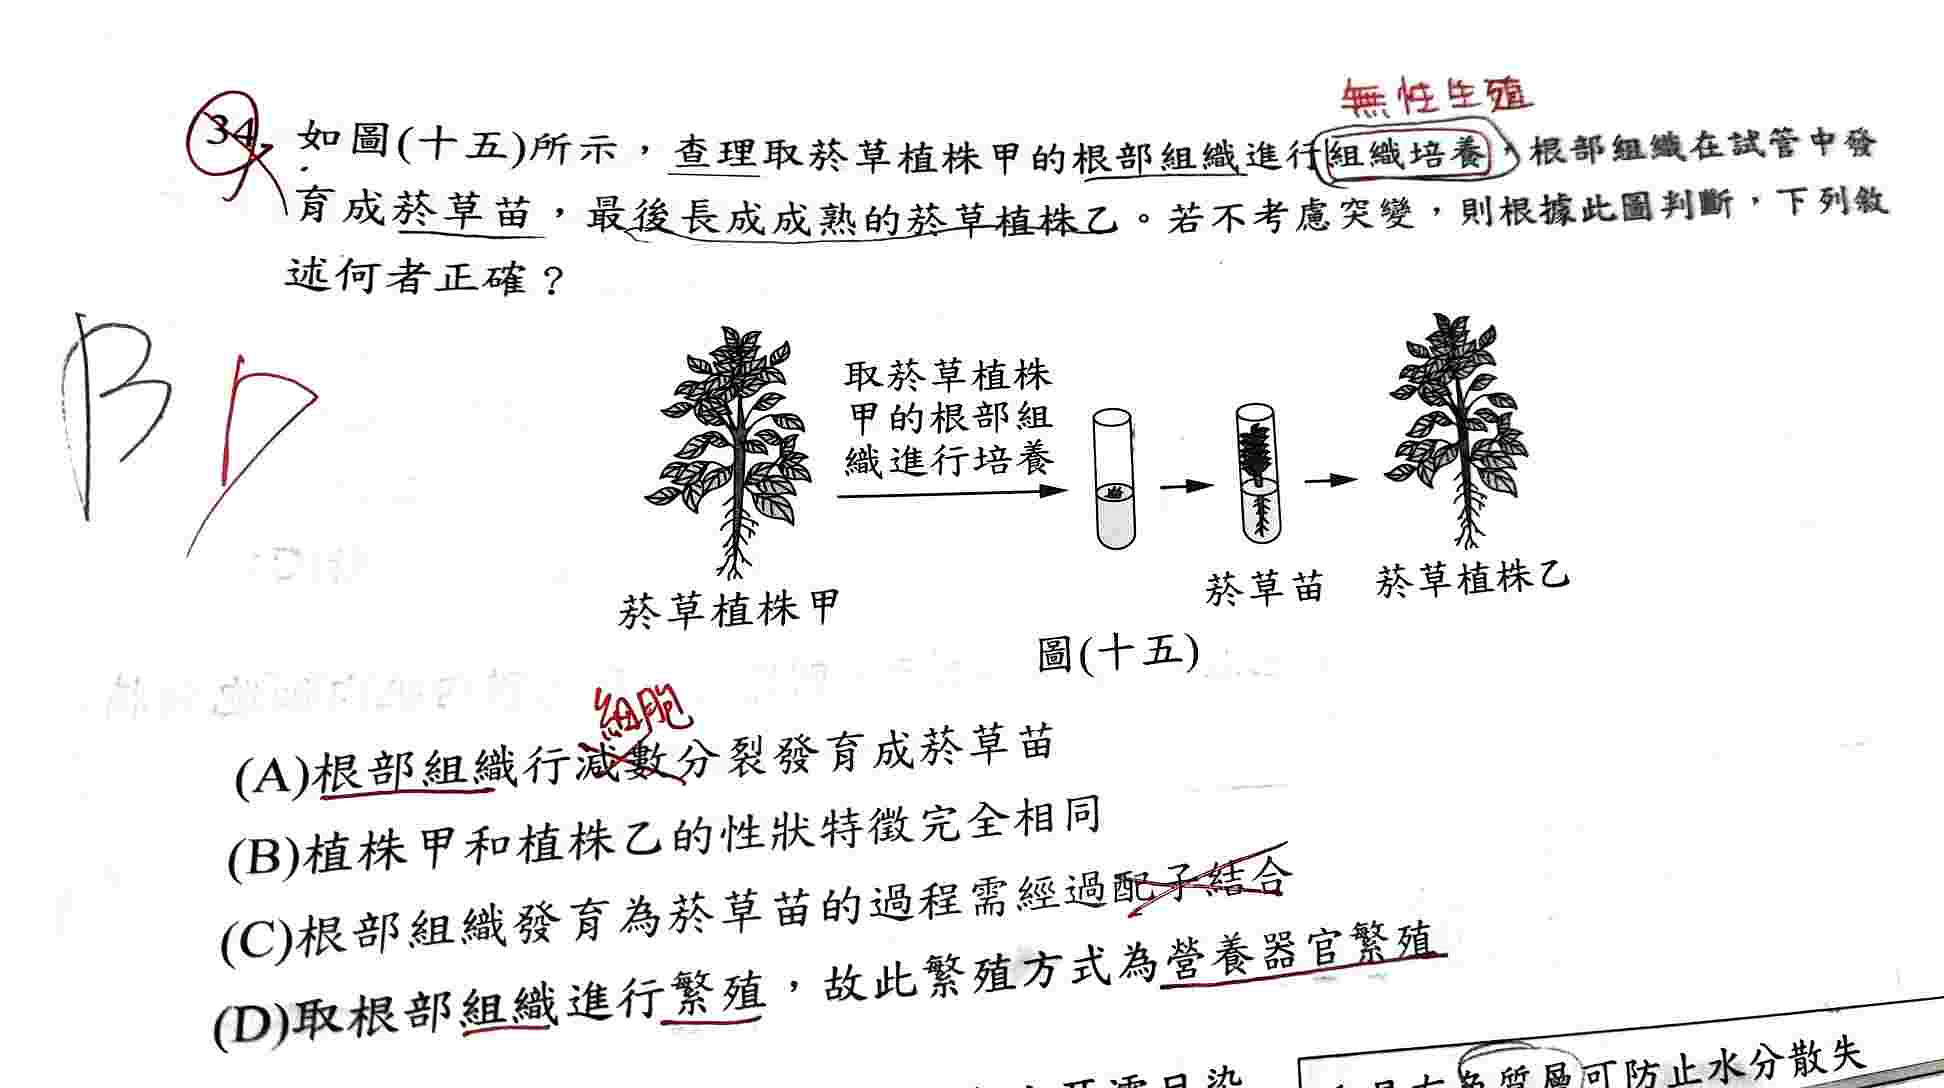 無性生殖
34. 如圖(十五)所示，查理取菸草植株甲的根部組織進行組織培養，根部組織在試管中發
育成菸草苗，最後長成成熟的菸草植株乙。若不考慮突變，則根據此圖判斷，下列敘
述何者正確？
B D
取菸草植株
甲的根部組
織進行培養
菸草植株甲
菸草苗
菸草植株乙
圖(十五)
細胞
(A)根部組織行減數分裂發育成菸草苗
(B)植株甲和植株乙的性狀特徵完全相同
(C)根部組織發育為菸草苗的過程需經過配子結合
(D)取根部組織進行繁殖，故此繁殖方式為營養器官繁殖
質層可防止水分散失